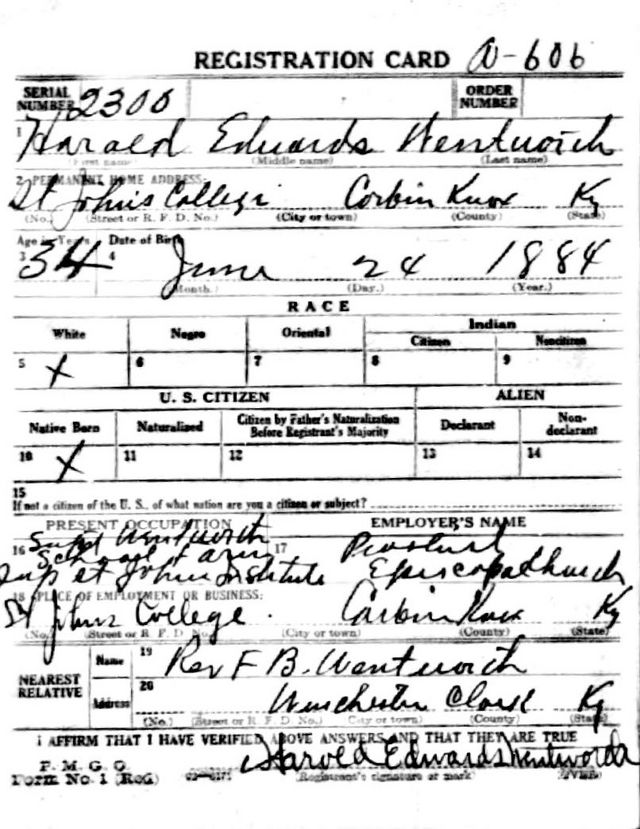 REGISTRATION CARD A-606
SERIAL NUMBER 2300 ORDER NUMBER
1 Harold Edwards Wentworth
(First name) (Middle name) (Last name)
2 PERMANENT HOME ADDRESS:
St John's College Corbin Knox Ky
(No.) (Street or R. F. D. No.) (City or town) (County) (State)
Age in Years Date of Birth
3 34 4 June 24 1884
(Month.) (Day.) (Year.)
RACE
White Negro Oriental Indian
Citizen Noncitizen
5 X 6 7 8 9
U. S. CITIZEN ALIEN
Native Born Naturalized Citizen by Father's Naturalization Before Registrant's Majority Declarant Non-declarant
10 X 11 12 13 14
15
If not a citizen of the U. S., of what nation are you a citizen or subject?
PRESENT OCCUPATION EMPLOYER'S NAME
16 Supt Wentworth 17
School farm Protestant
Sup St John Institute Episcopal Church
18 PLACE OF EMPLOYMENT OR BUSINESS:
St Johns College. Corbin Knox Ky
(No.) (Street or R. F. D. No.) (City or town) (County) (State)
NEAREST RELATIVE Name 19 Rev F B. Wentworth
Address 20 Winchester Clark Ky
(No.) (Street or R. F. D. No.) (City or town) (County) (State)
I AFFIRM THAT I HAVE VERIFIED ABOVE ANSWERS AND THAT THEY ARE TRUE
P. M. G. O.
Form No. 1 (Red) Harold Edwards Wentworth
(Registrant's signature or mark)